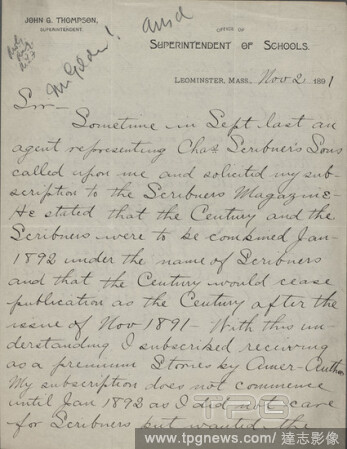 JOHN G. THOMPSON,
SUPERINTENDENT.
Mr Gilder!
ansd
OFFICE OF
SUPERINTENDENT OF SCHOOLS.
LEOMINSTER, MASS. Nov 2 1891
Sir—
Sometime in Sept last an
agent representing Chas Scribner's Sons
called upon me and solicited my sub-
scription to the Scribners Magazine—
He stated that the Century and the
Scribners were to be combined Jan
1892 under the name of Scribners
and that the Century would cease
publication as the Century after the
issue of Nov 1891— With this un-
derstanding I subscribed receiving
as a premium Stories by Amer-Authors
My subscription does not commence
until Jan 1892 as I did not care
for Scribners but wanted the
TPG
www.tpgnews.com / 達志影像